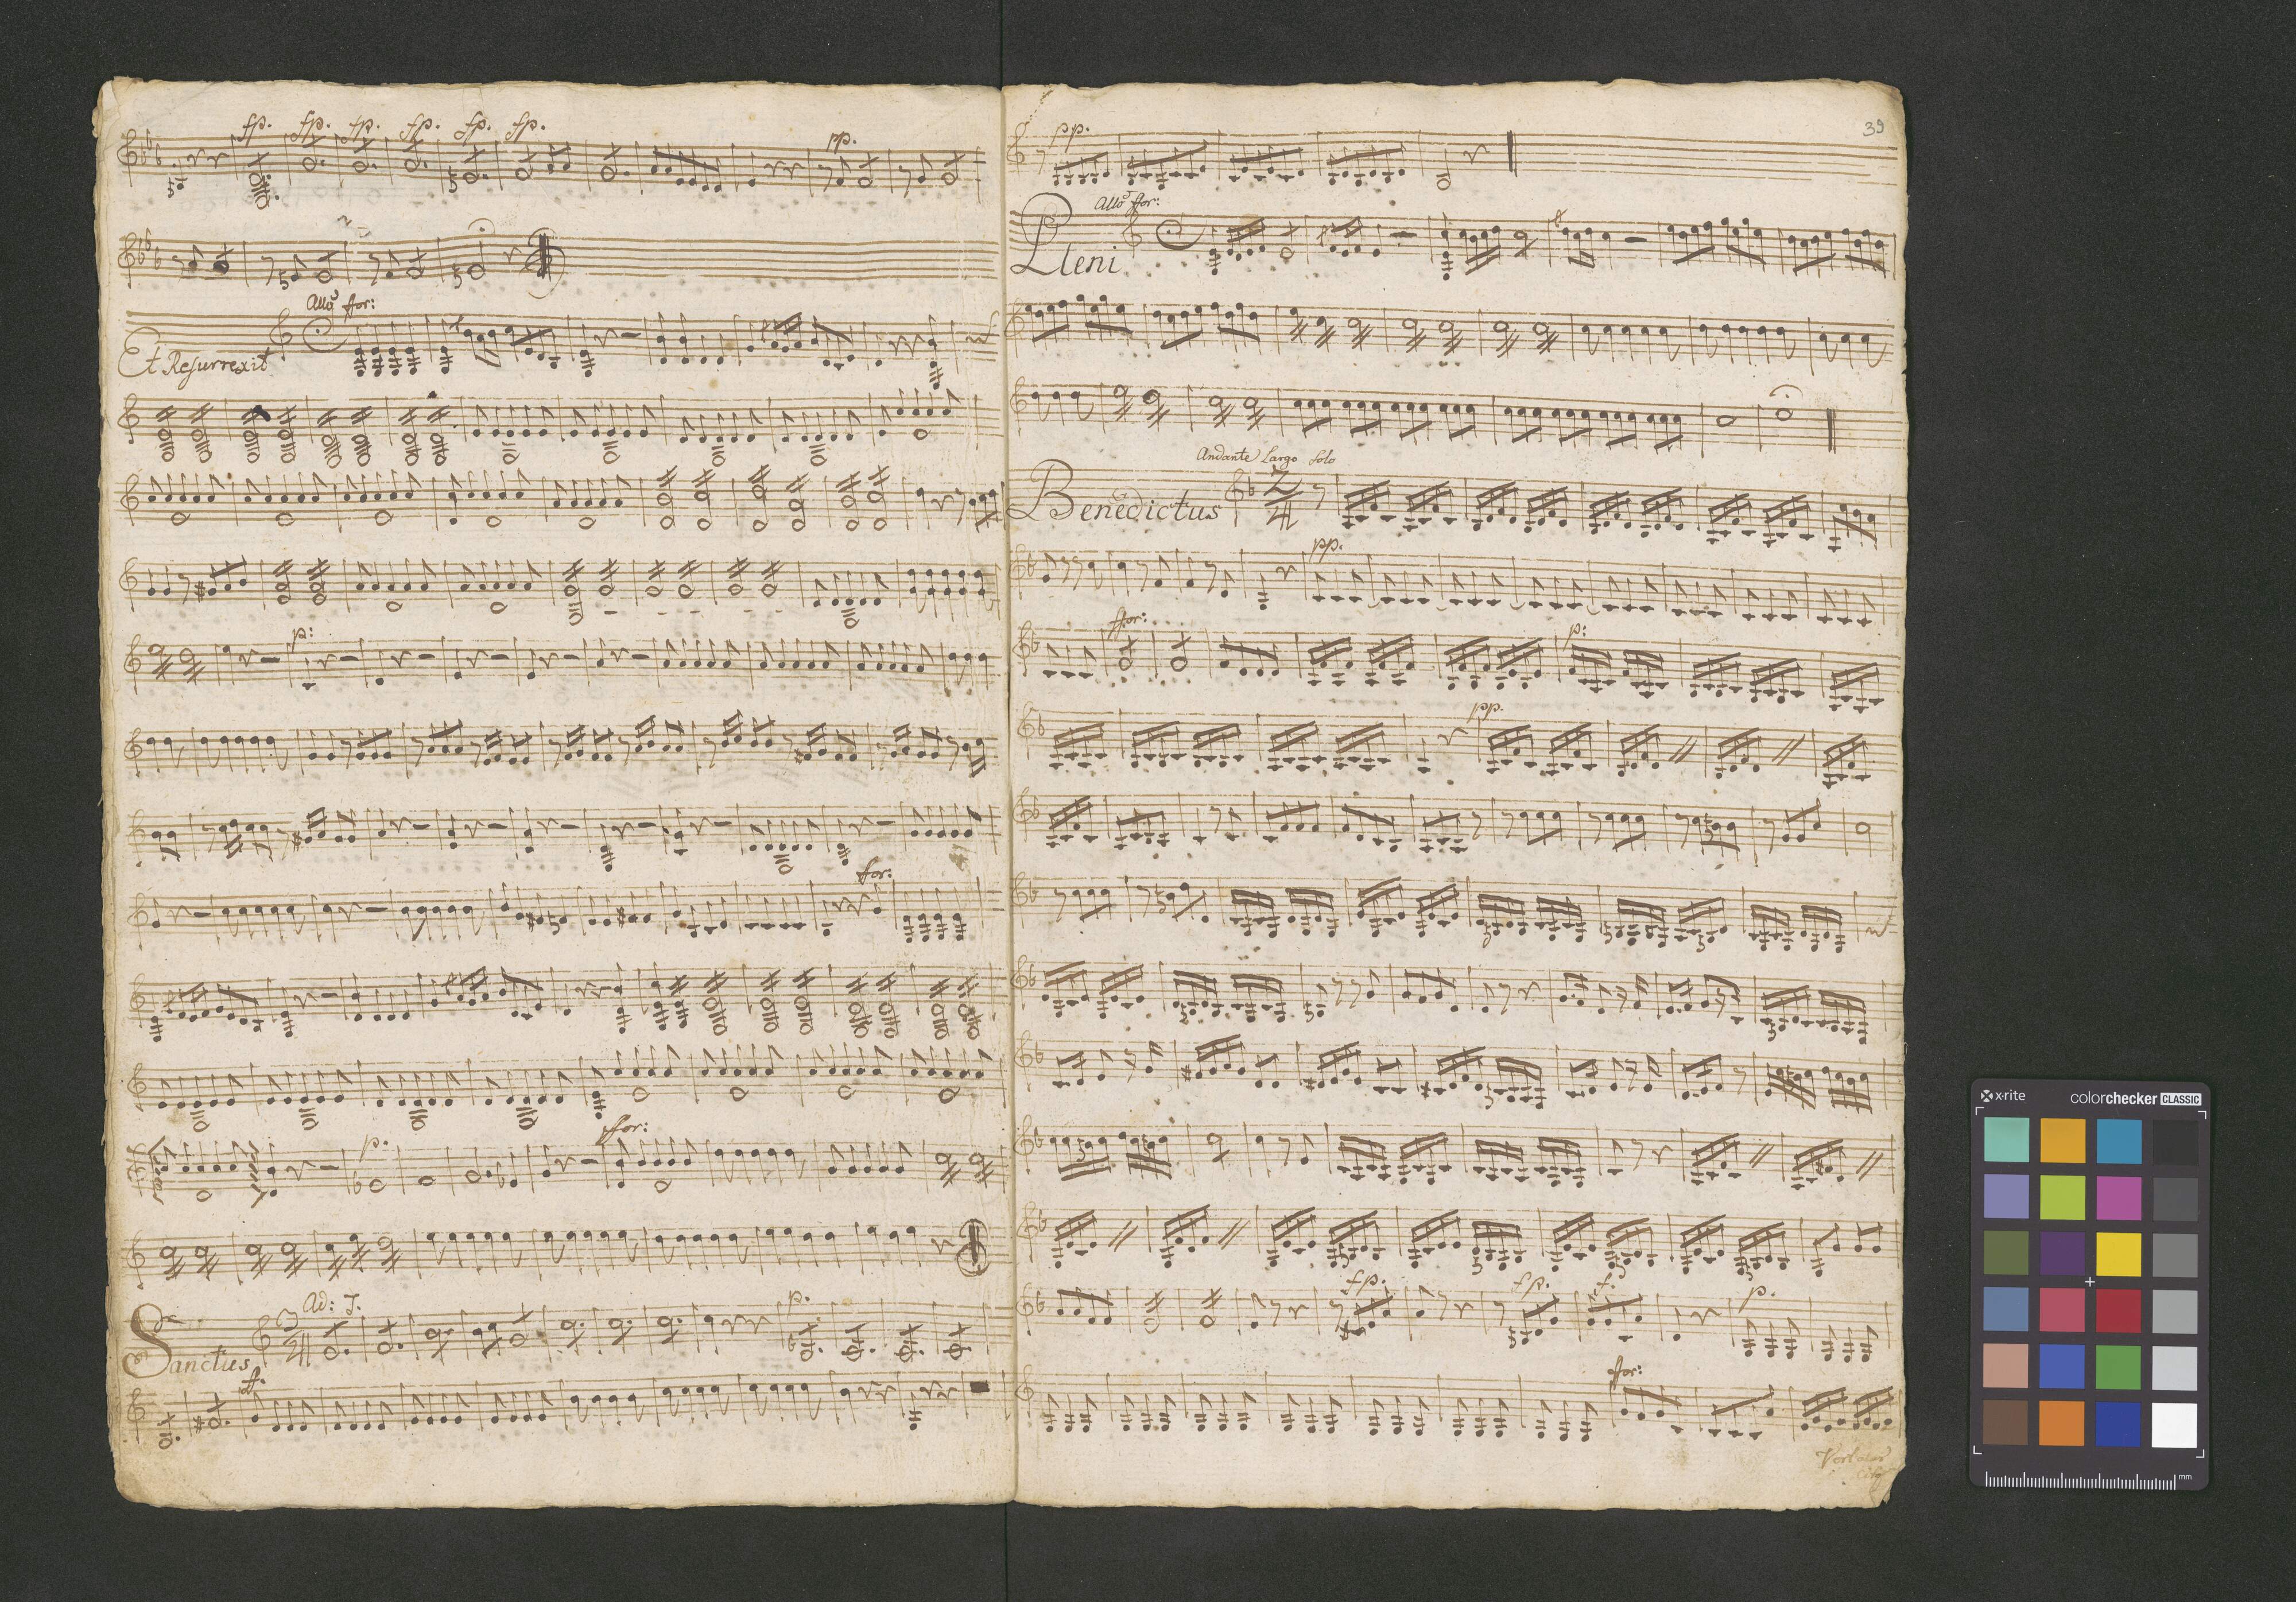 fp. fp. fp. fp. fp. fp. pp.
Allo for:
Et Resurrexit
p:
for:
p. for:
Ad: p.
Sanctus
f.
39
pp.
Allo for:
Pleni
Andante Largo Solo
Benedictus 2/4
pp.
for: p:
pp.
fp. fp. f. p.
for:
x-rite colorchecker CLASSIC
mm